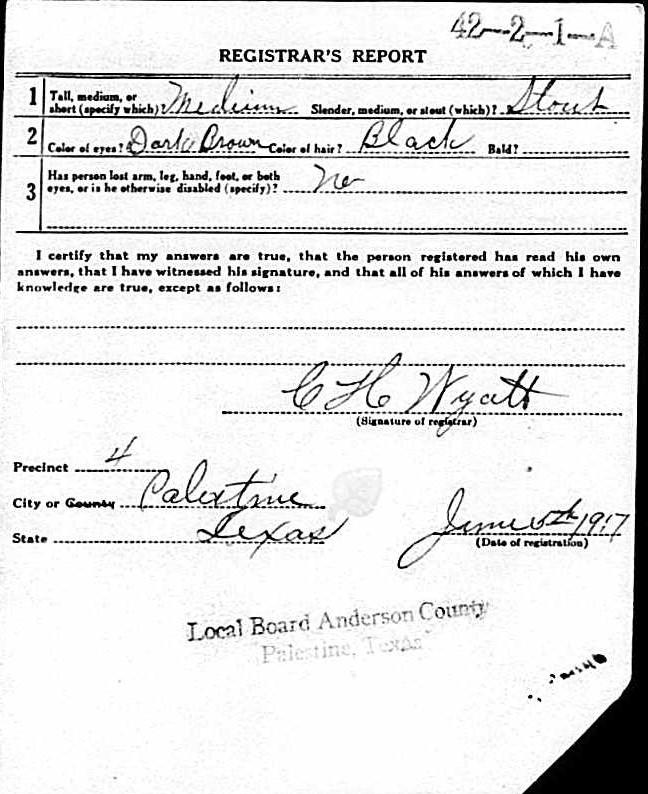 42-2-1-A
REGISTRAR'S REPORT
1 Tall, medium, or short (specify which) Medium Slender, medium, or stout (which)? Stout
2 Color of eyes? Dark Brown Color of hair? Black Bald?
3 Has person lost arm, leg, hand, foot, or both
eyes, or is he otherwise disabled (specify)? No
I certify that my answers are true, that the person registered has read his own
answers, that I have witnessed his signature, and that all of his answers of which I have
knowledge are true, except as follows:
C H Wyatt
(Signature of registrar)
Precinct 4
City or County Palestine
State Texas June 5th 1917
(Date of registration)
Local Board Anderson County
Palestine, Texas